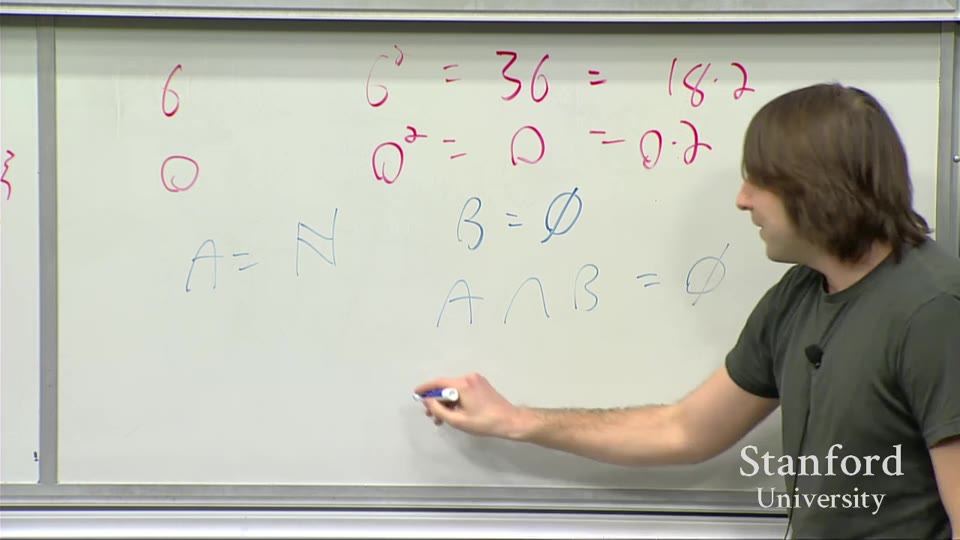 6 6² = 36 = 18·2
0 0² = 0 = 0·2
A = ℕ B = ∅
A ∩ B = ∅
}
Stanford
University